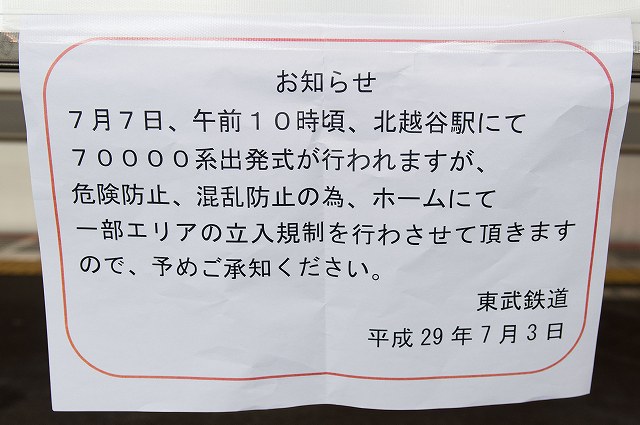 お知らせ
７月７日、午前１０時頃、北越谷駅にて
７００００系出発式が行われますが、
危険防止、混乱防止の為、ホームにて
一部エリアの立入規制を行わさせて頂きます
ので、予めご承知ください。
東武鉄道
平成29年7月3日